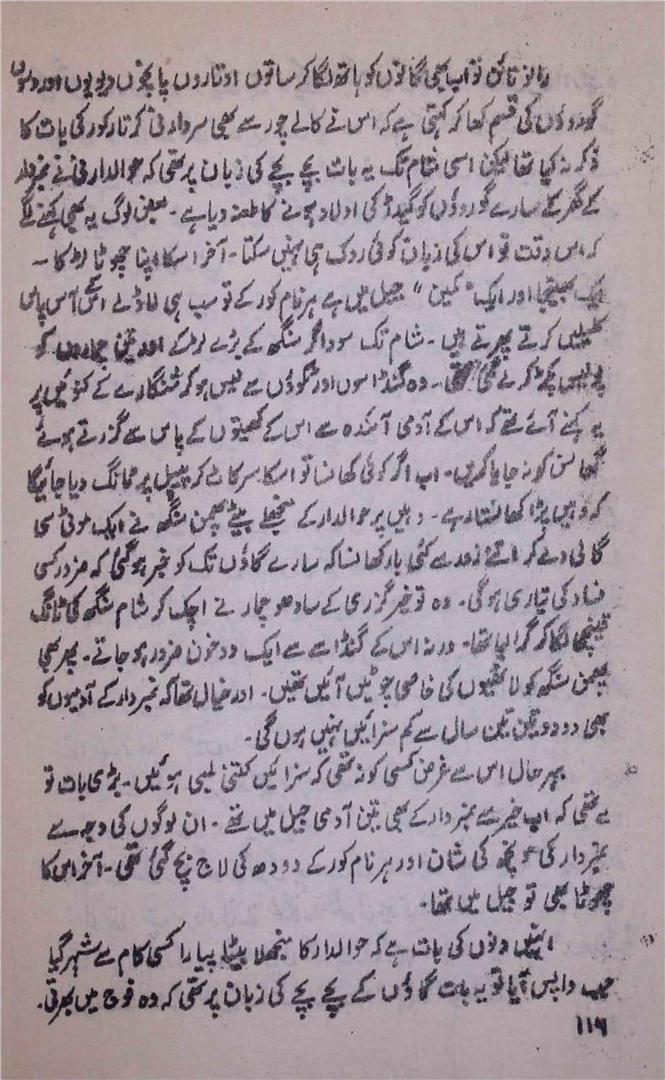 بانو نائن تو اب بھی گالوں کو ہاتھ لگا کر ساتوں اوتاروں پانچوں دیویوں اور دسوں
گوروؤں کی قسم کھا کر کہتی ہے کہ اس نے کالے چور سے بھی سردارنی کرتار کور کی بات کا
ذکر نہ کیا تھا لیکن اسی شام تک یہ بات بچے بچے کی زبان پر تھی کہ حوالدارنی نے نمبردار
کے گھر کے سارے گوروؤں کو گیدڑ کی اولاد ہونے کا طعنہ دیا ہے۔ بعض لوگ یہ بھی کہنے لگے
کہ اس وقت تو اس کی زبان کوئی روک ہی نہیں سکتا۔ آخر اسکا اپنا چھوٹا لڑکا۔
ایک بھتیجا اور ایک "کمین" جیل میں ہے ہرنام کور کے تو سب ہی لاڈلے اسکے آس پاس
کھیلیں کرتے پھرتے ہیں۔ شام تک سوداگر سنگھ کے بڑے لڑکے اور تین چماروں کو
پولیس پکڑ کر لے گئی تھی۔ وہ گنڈاسوں اور ٹکوؤں سے لیس ہو کر شنگارے کے کنوئیں پر
یہ کہنے آئے تھے کہ اس کے آدمی آئندہ سے اس کے کھیتوں کے پاس سے گزرتے ہوئے
کھانسی کو نہ جایا کریں۔ اب اگر کوئی کھانسا تو اسکا سر کاٹ کر پیپل پر ٹانگ دیا جائیگا
کہ وہیں پڑا کھانستا رہے۔ وہیں پر حوالدار کے منجھلے بیٹے لچھمن سنگھ نے ایک موٹی سی
گالی دے کر اتنے زور سے کئی بار کھانسا کہ سارے گاؤں تک کو خبر ہو گئی کہ ضرور کسی
فساد کی تیاری ہوگی۔ وہ تو خیر گزری کے سادھو چمار نے اچک کر شام سنگھ کی ٹانگ
قینچی لگا کر گرا لیا تھا۔ ورنہ اس کے گنڈاسے سے ایک دو خون ضرور ہو جاتے۔ پھر بھی
لچھمن سنگھ کو لاٹھیوں کی خاصی چوٹیں آئیں تھیں۔ اور خیال تھا کہ نمبردار کے آدمیوں کو
بھی دو دو تین تین سال سے کم سزائیں نہیں ہوں گی۔
بہرحال اس سے غرض کسی کو نہ تھی کہ سزائیں کتنی لمبی ہوئیں۔ بڑی بات تو
یہ تھی کہ اب خیر سے نمبردار کے بھی تین آدمی جیل میں تھے۔ ان لوگوں کی وجہ سے
نمبردار کی مونچھ کی شان اور ہرنام کور کے دودھ کی لاج بچ گئی تھی۔ آخر اس کا
چھوٹا بھی تو جیل میں تھا۔
انہیں دنوں کی بات ہے کہ حوالدار کا منجھلا بیٹا پیارا کسی کام سے شہر گیا
جب واپس آیا تو یہ بات گاؤں کے بچے بچے کی زبان پر تھی کہ وہ فوج میں بھرتی۔
۱۱۶